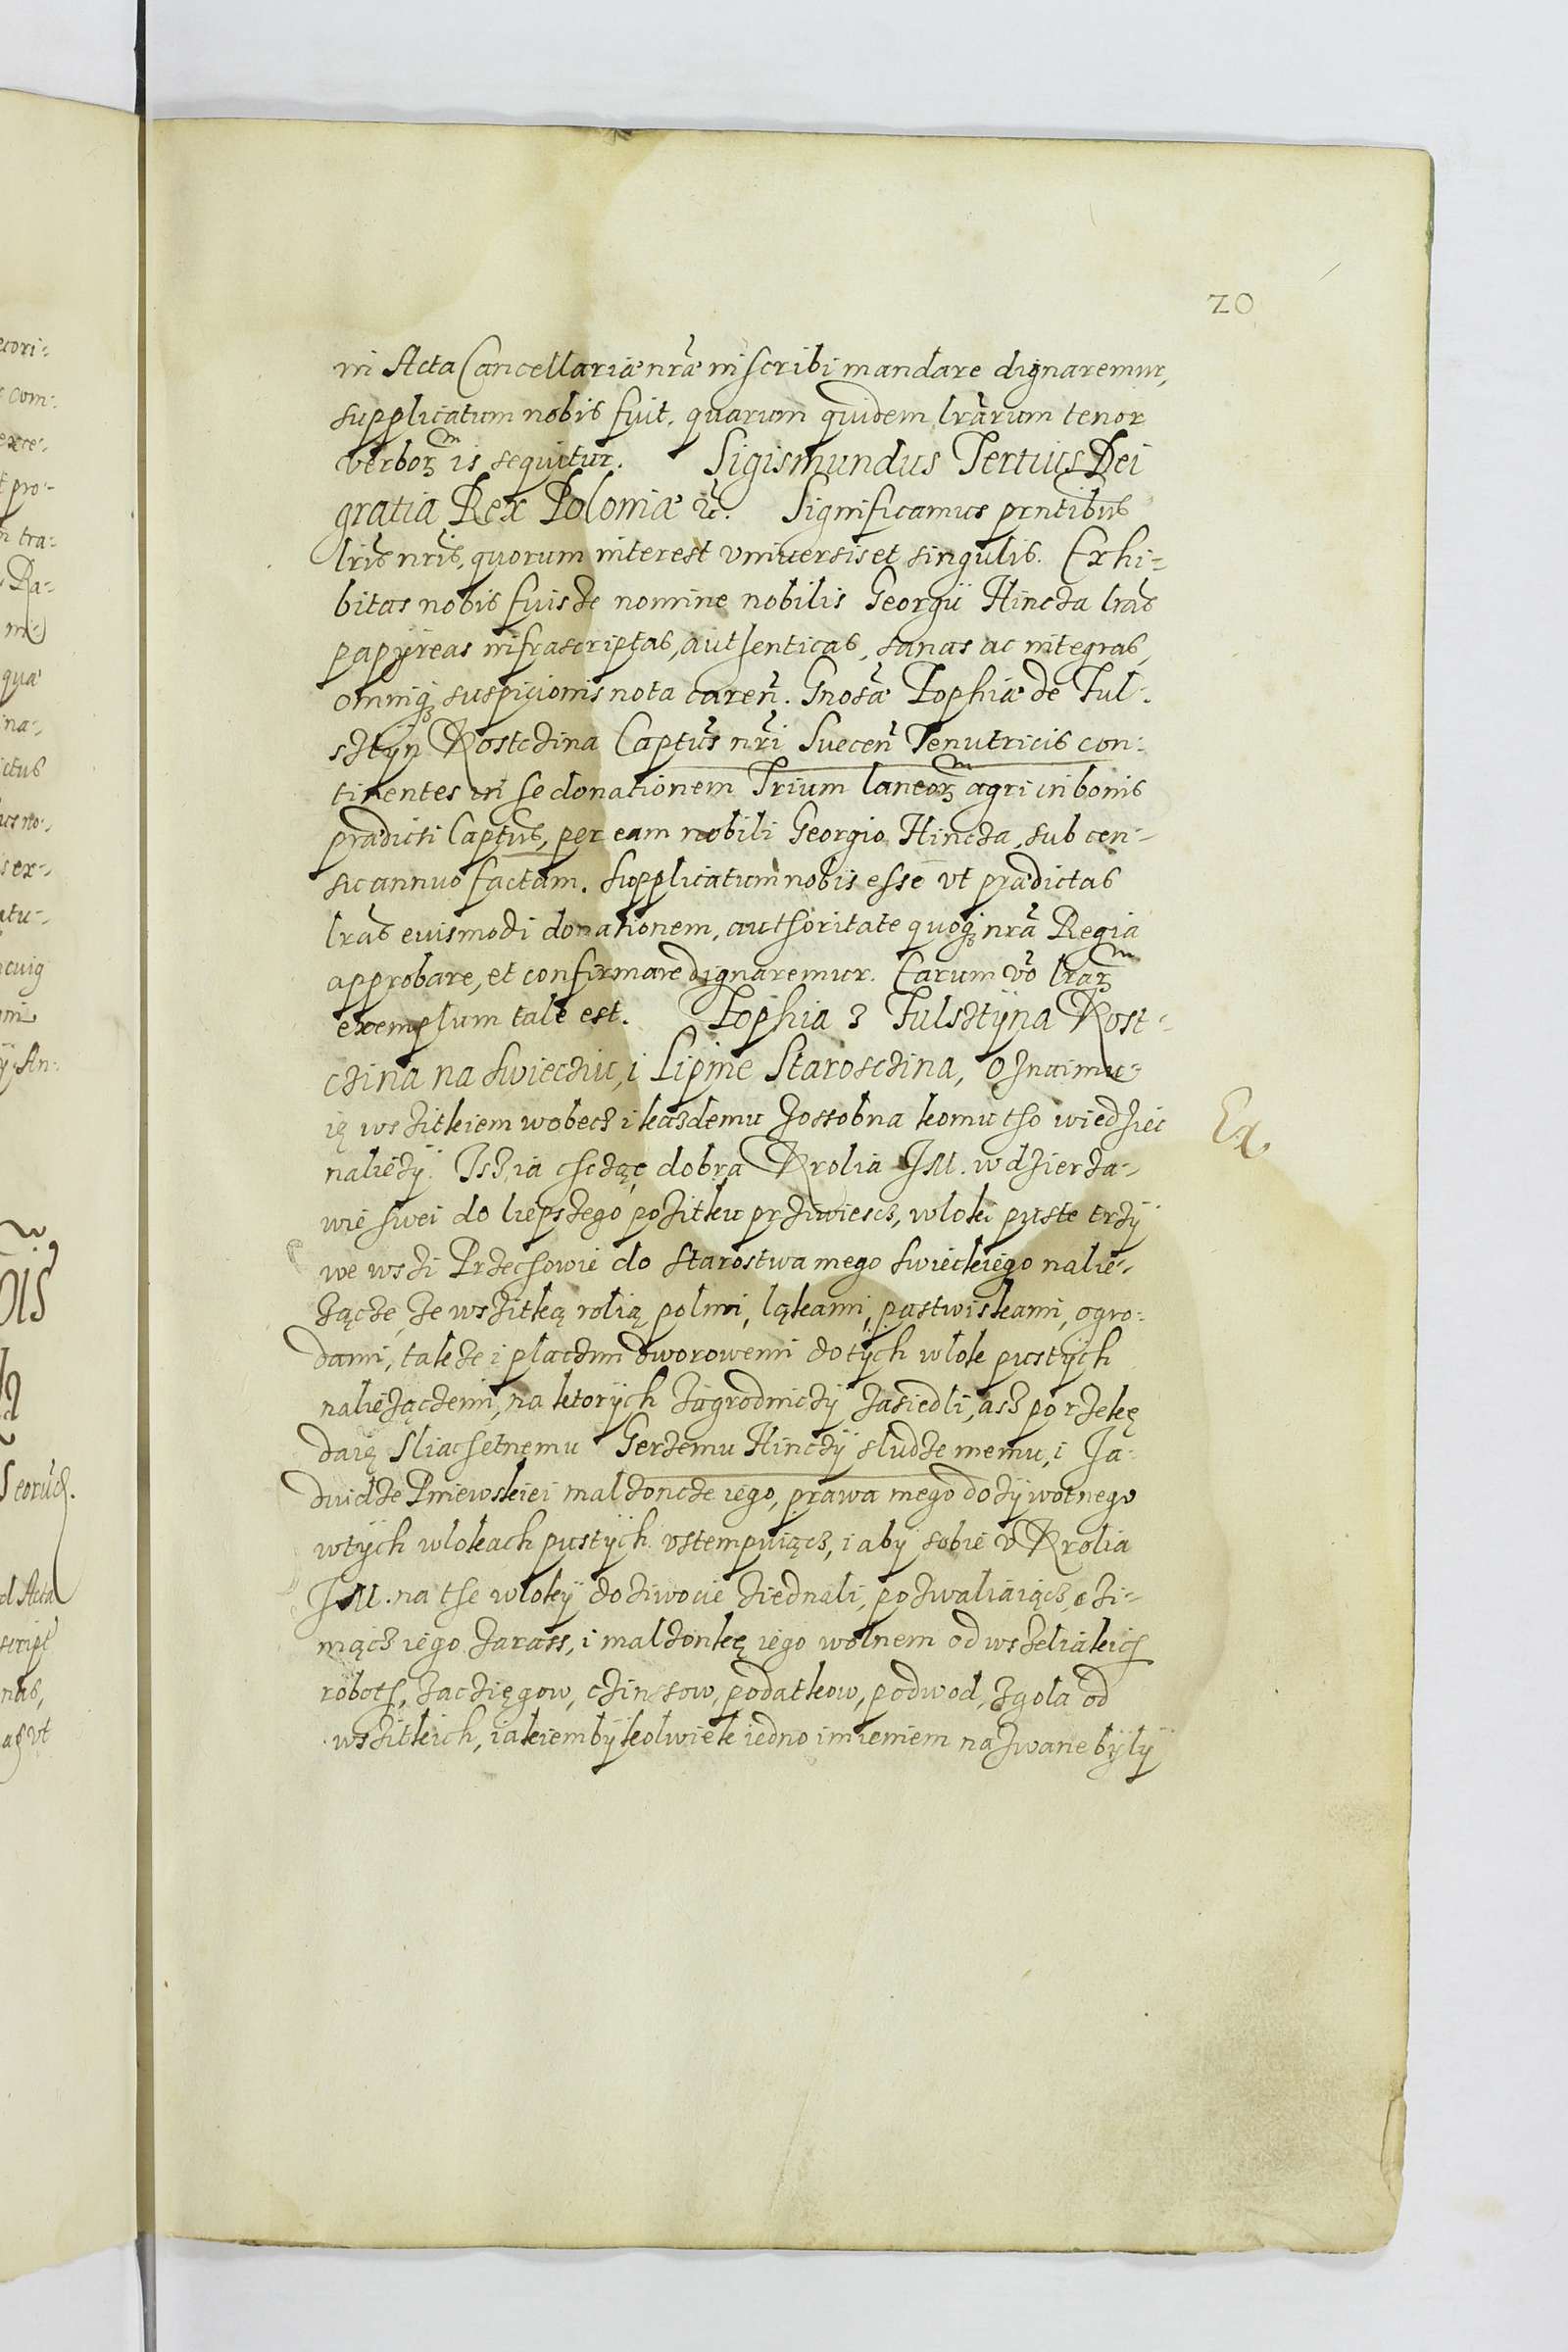 20
in Acta Cancellariæ nr̃æ inscribi mandare dignaremur,
supplicatum nobis fuit. quarum quidem lr̃arum tenor
verborꝫ is sequitur. Sigismundus Tertius Dei
gratia Rex Poloniæ ꝛc̃. Significamus pr̃ntibus
lr̃is nr̃is, quorum interest vniuersis et singulis. Exhi-
bitas nobis fuisse nomine nobilis Georgÿ Hincza lr̃as
papÿreas infrascriptas, authenticas, sanas ac integras,
omniqꝫ suspicionis nota careñ. Gnosæ Zophiæ de Ful-
sztÿn Kostczina Captũs nr̃i Sueceñ Tenutricis con-
tinentes in se donationem Trium laneorꝫ agri in bonis
prædicti Captus, per eam nobili Georgio Hincza, sub cen-
su annuo factam. Supplicatum nobis esse vt prædictas
lr̃as euismodi donationem, authoritate quoqꝫ nr̃a Regia
approbare, et confirmare dignaremur. Earum vo lr̃arꝫ
exemplum tale est. Zophia z Fulsztÿna Kost-
czina na Swiecziu, i Lipine Starosczina, Oznaimu-
ię wszitkiem wobecz i kaszdemu zossobna komu tho wiedziec
należÿ. Isz ia chcząc dobra Krolia JM. w dzierża-
wie swei do liepszego pożitku prziwiescz, wloki puste trzÿ
we wszi Przechowie do Starostwa mego Swieckiego nalie-
żącze, ze wszitką rolią polmi, ląkami, pastwiskami, ogro-
dami, takze i placzmi dworowemi do tÿch wlok pustÿch
nalieżączemi, na ktorÿch zagrodniczÿ zasiedli, asz po rzekę
daię Sliachetnemu Gerzemu Hinczÿ sludze memu, i Ja-
dwidze Pniewskiei malzoncze iego, prawa mego dożÿwotnego
w tÿch wlokach pustÿch vstempuiącz, i abÿ sobie v Krolia
JM. na the wlokÿ dożiwocie ziednali, pozwaliaiącz, czi-
niącz iego zarass, i malzonkę iego wolnem od wszeliakich
roboth, zacziegow, czinssow, podatkow, podwod, zgola od
wszitkich, iakiem bÿkolwiek iedno imieniem nazwane bÿlÿ
Ex